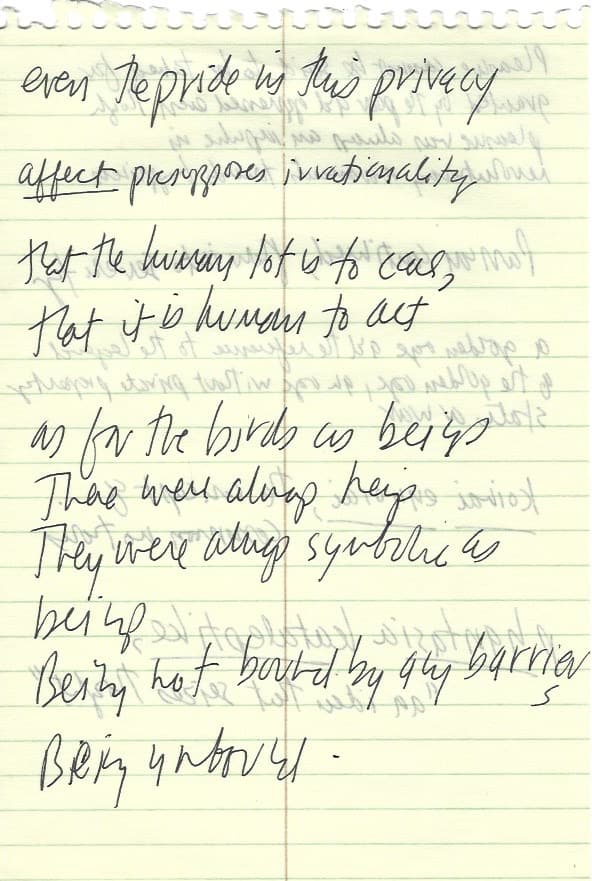 even the pride in this privacy
affect presupposes irrationality
that the human lot is to care,
that it is human to act
as for the birds as beings
There were always
They were always symbolic as
beings
Being not bound by any barriers
Being unbound.